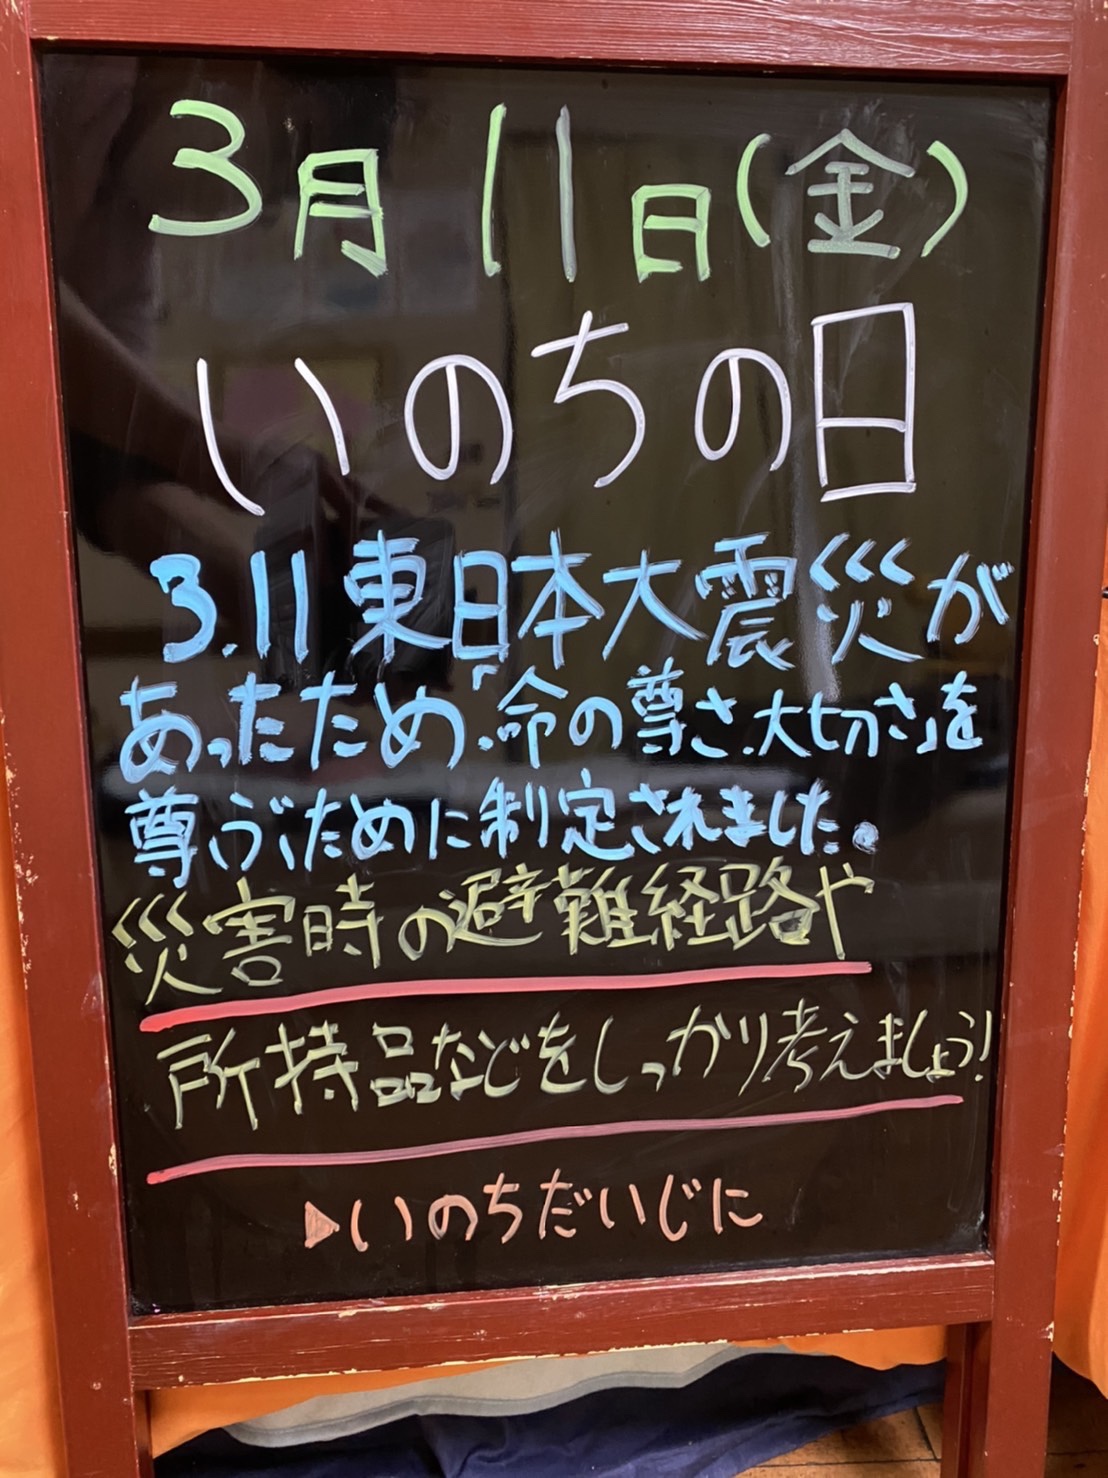 3月11日(金)
いのちの日
3.11東日本大震災が
あったため、「命の尊さ、大切さ」を
尊ぶために制定されました。
災害時の避難経路や
所持品などをしっかり考えましょう!
▶いのちだいじに